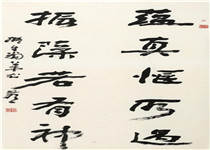 蘊真愜所遇
振藻若有神